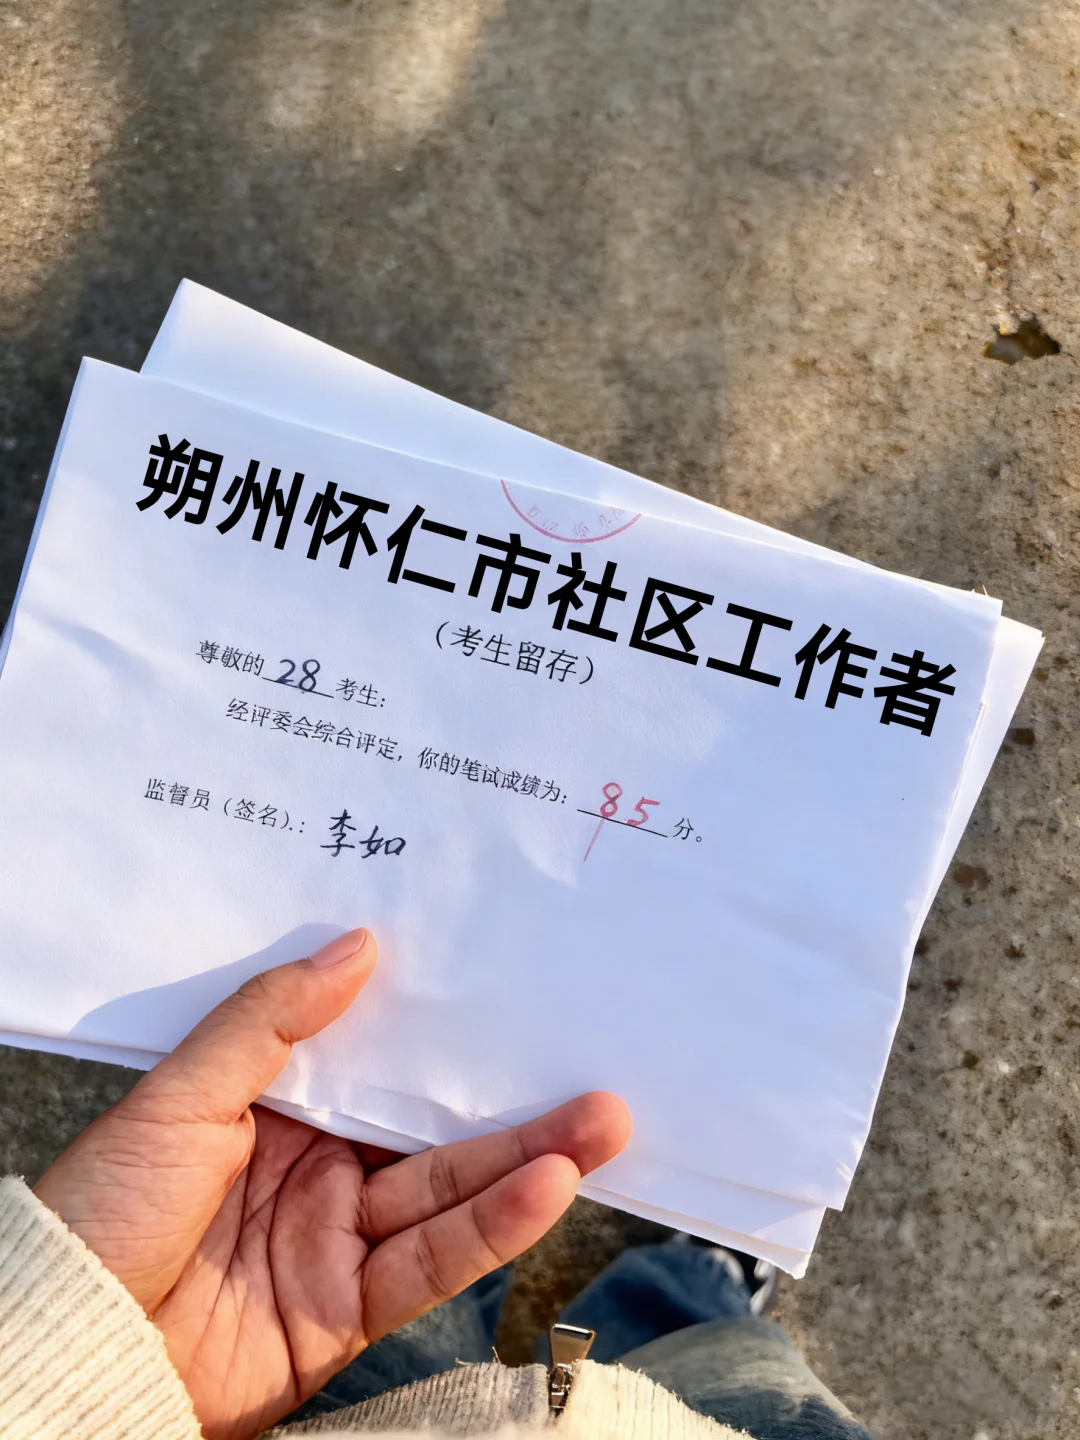 朔州怀仁市社区工作者
（考生留存）
尊敬的28考生：
经评委会综合评定，你的笔试成绩为：85分。
监督员（签名）.：李如